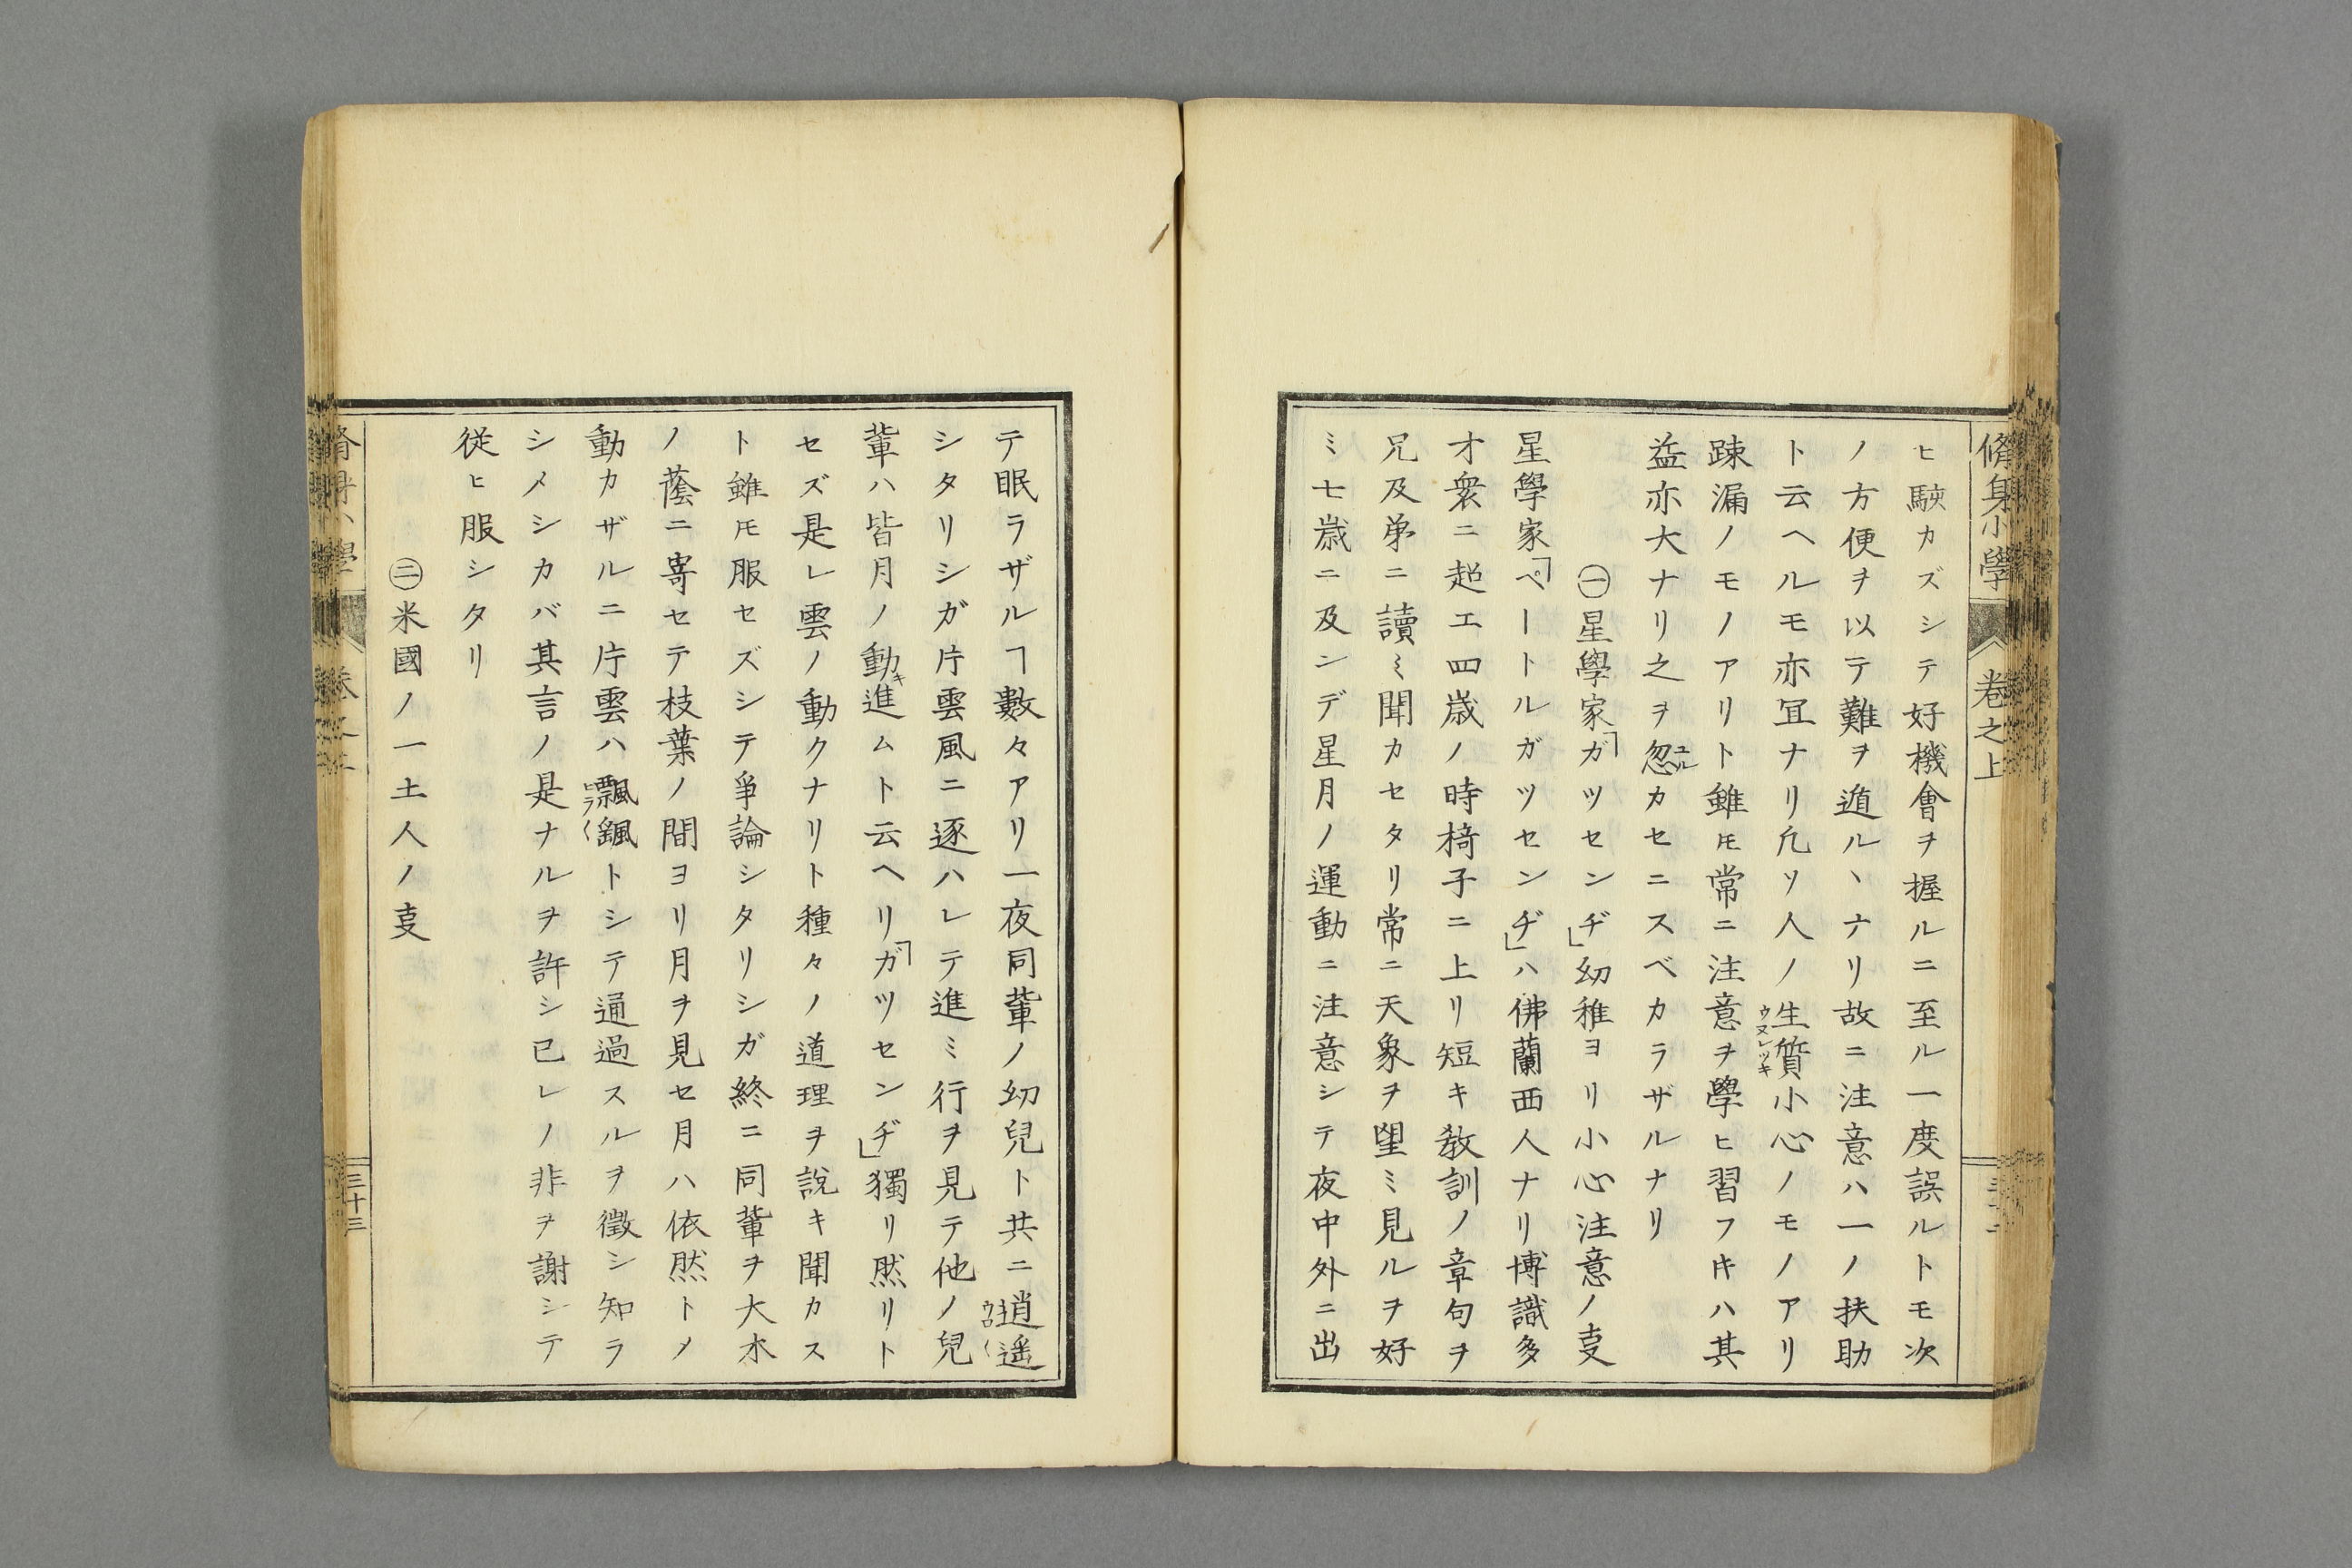 脩身小學 卷之上
ヒ駛カズシテ好機會ヲ握ルニ至ル一度誤ルトモ次
ノ方便ヲ以テ難ヲ遁ルヽナリ故ニ注意ハ一ノ扶助
ト云ヘルモ亦冝ナリ凢ソ人ノ生質小心ノモノアリ
ウマレツキ
踈漏ノモノアリト雖𪜈常ニ注意ヲ學ヒ習フ𪜀ハ其
益亦大ナリ之ヲ忽カセニスベカラザルナリ
ユル
㊀星學家「ガツセンヂ」幼稚ヨリ小心注意ノ㕝
星學家「ペートルガツセンヂ」ハ佛蘭西人ナリ博識多
才衆ニ超エ四歳ノ時椅子ニ上リ短キ敎訓ノ章句ヲ
兄及弟ニ讀ミ聞カセタリ常ニ天象ヲ望ミ見ルヲ好
ミ七歳ニ及ンデ星月ノ運動ニ注意シテ夜中外ニ出
テ眠ラザルヿ數々アリ一夜同輩ノ幼兒ト共ニ逍遥
シタリシガ片雲風ニ逐ハレテ進ミ行ヲ見テ他ノ兒
輩ハ皆月ノ動キ進ムト云ヘリ「ガツセンヂ」獨リ然リト
セズ是レ雲ノ動クナリト種々ノ道理ヲ說キ聞カス
ト雖𪜈服セズシテ爭論シタリシガ終ニ同輩ヲ大木
ノ蔭ニ寄セテ枝葉ノ間ヨリ月ヲ見セ月ハ依然トメ
動カザルニ片雲ハ飄颻トシテ通過スルヲ徴シ知ラ
シメシカバ其言ノ是ナルヲ許シ已レノ非ヲ謝シテ
従ヒ服シタリ
㊁米國ノ一土人ノ㕝
三十三